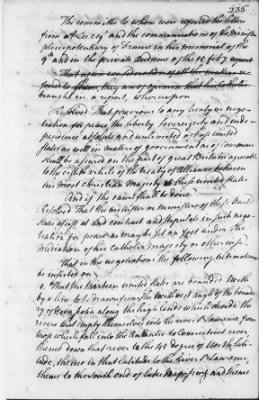 235
The committee to whom were referred the letter
from A Lee esqr and the communications of the minister
plenipotentiary of France in his memorial of the
9th and in the private audience of the 15 feby report
That upon consideration of all
ferred to them, they are of opinion that his Catholic
Resolved That previous to any treaty or nego-
tiation for peace the liberty sovereignty and inde-
pendence absolute and unlimited of these united
states as well in matters of government as of commerce
shall be assured on the part of great Britain agreeable
to the eighth article of the treaty of alliance between
his most christian majesty & these united states
And if the same shall be done
Resolved That the minister or ministers of these United
States assist at and contract and stipulate in such nego-
tiation for peace as may be set on foot under the
mediation of his Catholic majesty or otherwise
That in the negotiation the following ultimatum
be insisted on
1. That the thirteen united states are bounded North
by a line to be drawn from the North west angle of the bounda-
ry of Nova Scotia along the high lands which divide the
rivers that empty themselves into the river St Lawrence from
those which fall into the Atlantic to Connecticut river
thence down that river to the 45 degree of North lati-
tude, thence in that latitude to the River St Lawrence,
thence to the south end of lake Nipissing and thence